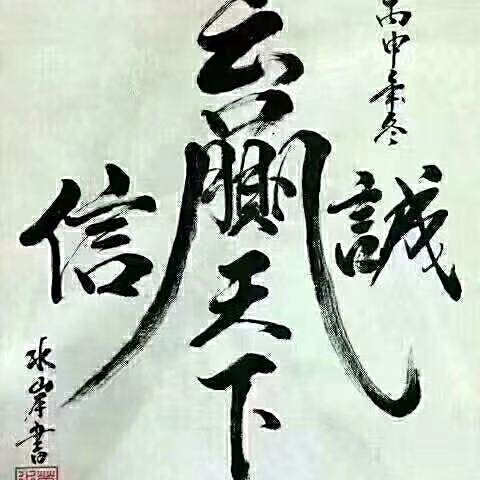 丙申年冬
誠信
贏天下
冰岸書